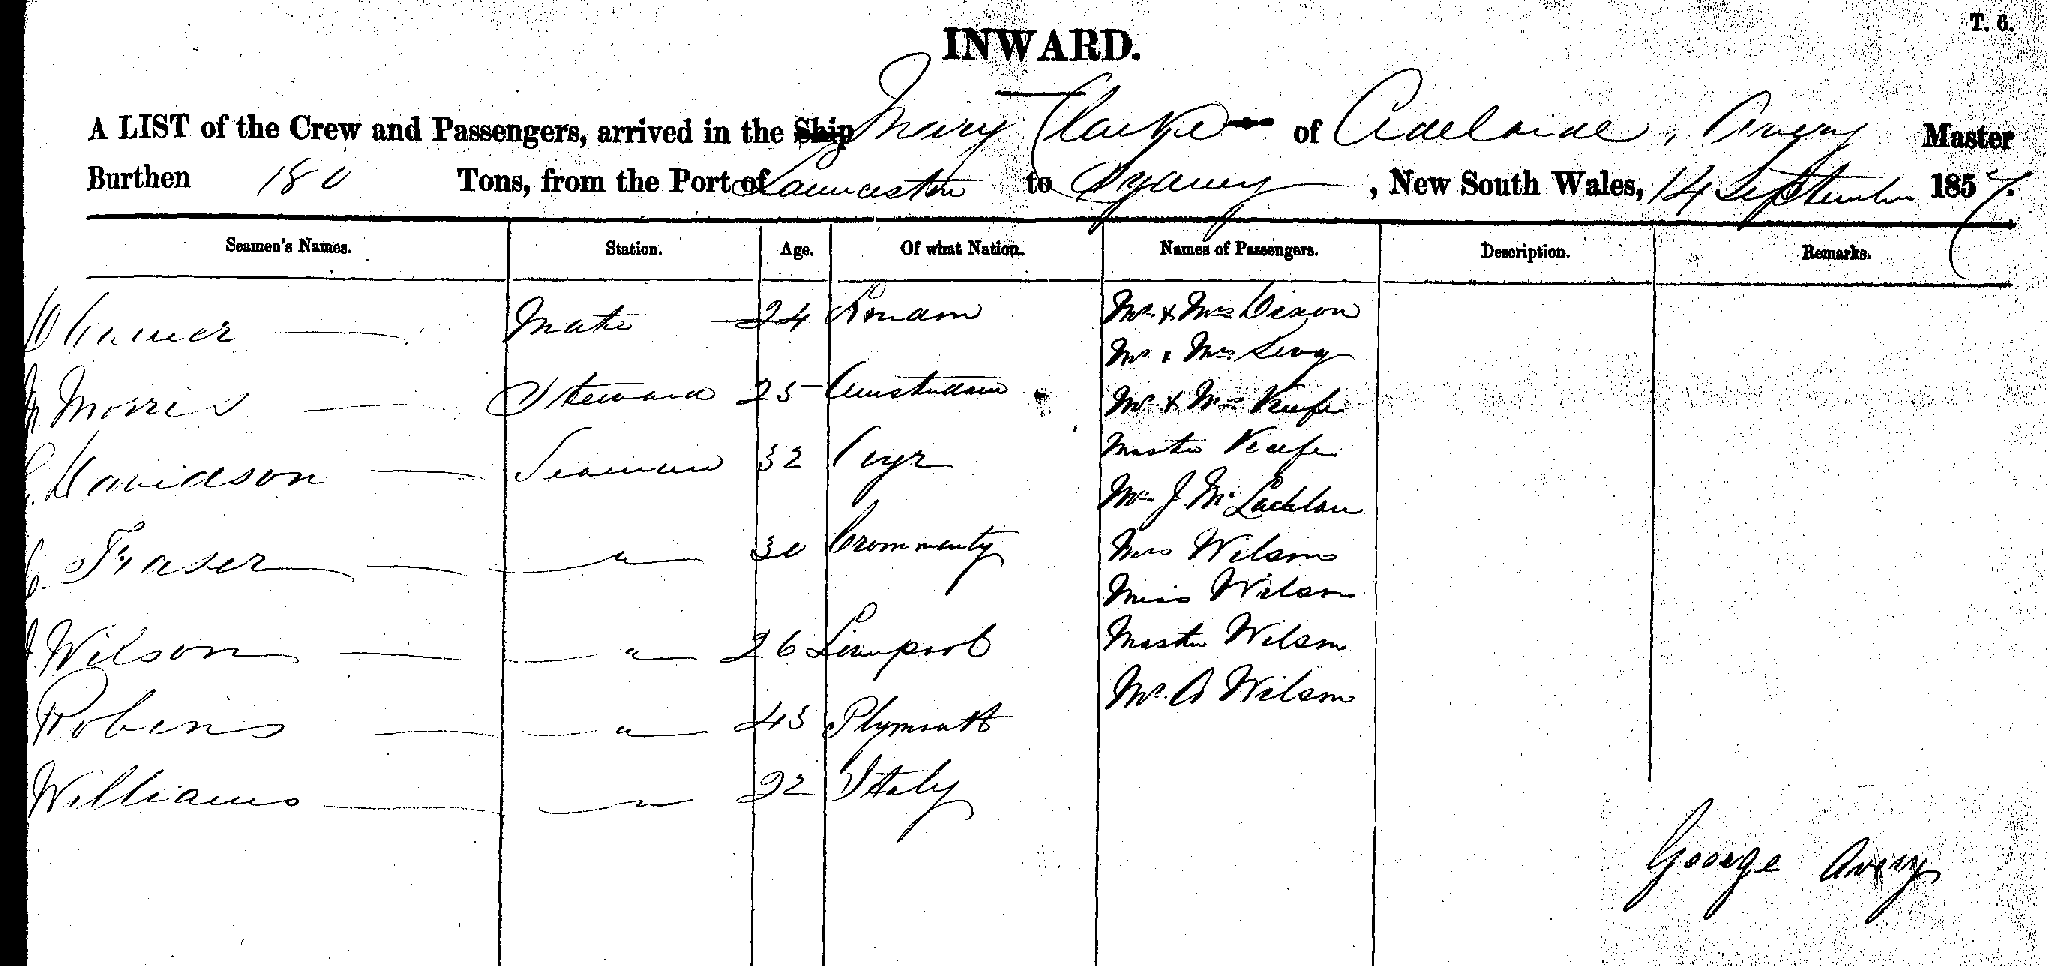 T. 6.
INWARD.
A LIST of the Crew and Passengers, arrived in the Ship Mary Clarke of Adelaide, Avery Master
Burthen 180 Tons, from the Port of Launceston to Sydney, New South Wales, 14 September 1857.
Seamen's Names. Station. Age. Of what Nation. Names of Passengers. Description. Remarks.
Mate 24 London Mr & Mrs Dixon
Mr & Mrs Levy
Morris Steward 25 Amsterdam Mr & Mrs Keefe
Davidson Seaman 32 Ayr Master Keefe
Mr J. McLachlan
Fraser " 30 Crommarty Mrs Wilson
Miss Wilson
Wilson " 26 Liverpool Master Wilson
Mr. A Wilson
Robins " 43 Plymouth
Williams " 22 Italy
George Avery